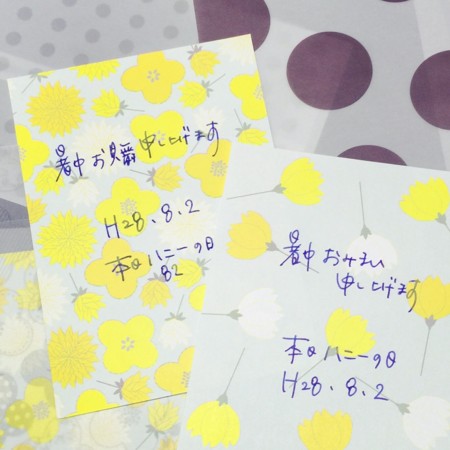 暑中お 申し上げます
H28.8.2
本日ハニーの日
82
暑中おみまい
申し上げます
本日ハニーの日
H28.8.2